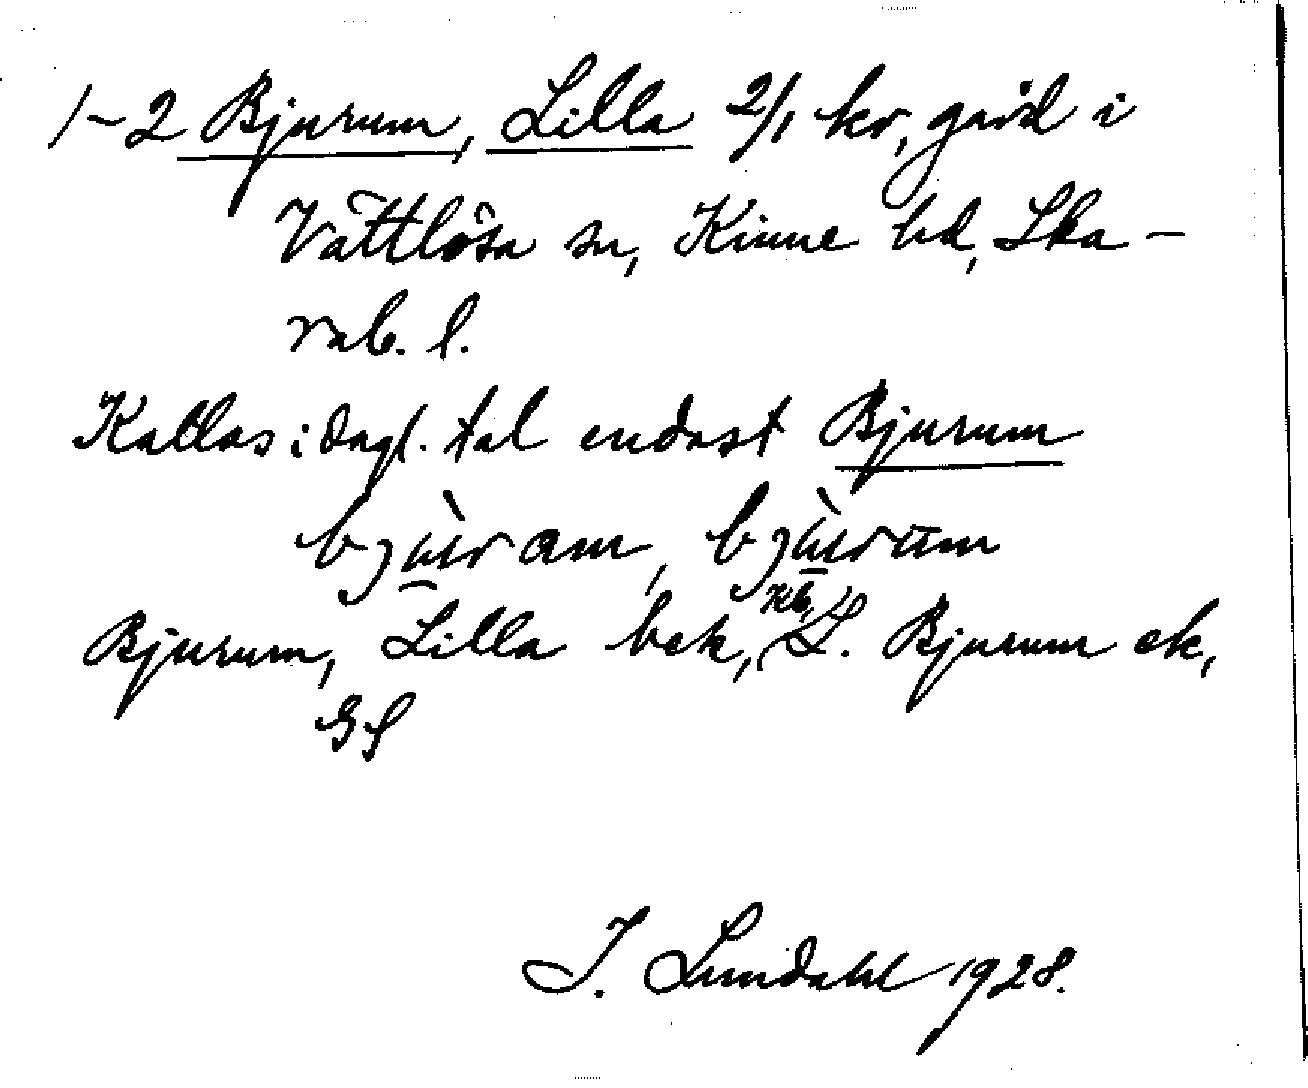 1-2 Bjurum, Lilla 2/1 kr, gård i
Vättlösa sn, Kinne hd, Ska-
rab. l.
Kallas i dagl. tal endast Bjurum
bjùram, bjùrum
Bjurum, Lilla bek, Kb, L. Bjurum ek,
GS
I. Lundahl 1928.